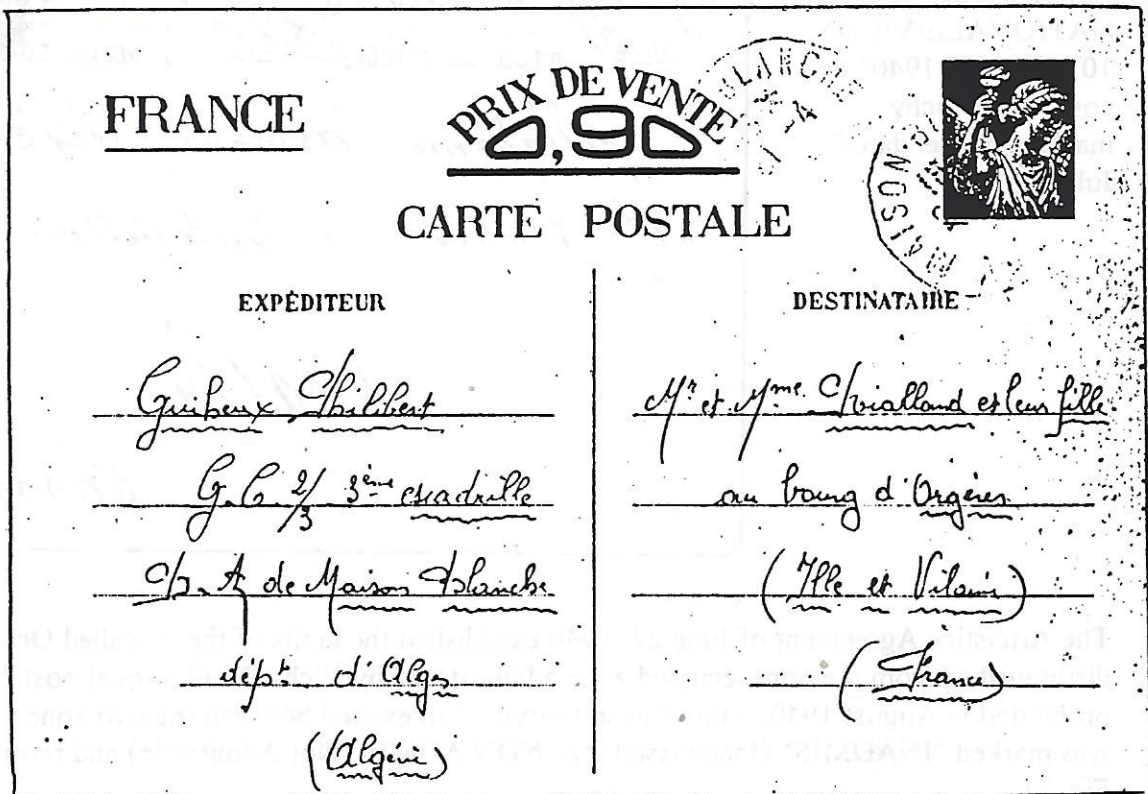 FRANCE
PRIX DE VENTE
0,90
CARTE POSTALE
MAISON BLANCHE
EXPÉDITEUR
Guiheux Philibert
G.C. 2/3 3ème escadrille
B. A. de Maison Blanche
dépt. d'Alger
(Algérie)
DESTINATAIRE
Mr et Mme Vialland et leur fille
au bourg d'Orgères
(Ille et Vilaine)
(France)